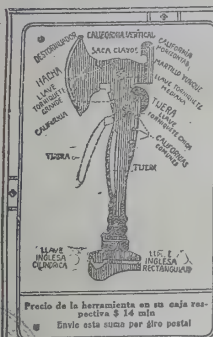 DESTORNILLADOR
CALIFORNIA VERTICAL
SACA CLAVOS
CALIFORNIA
HORIZONTAL
MARTILLO
HACHA
LLAVE
TORNIQUETE
GRANDE
CALIFORNIA
LLAVE TORNIQUETE
MEDIANO
TUERA
LLAVE
TORNIQUETE CHICA
CALIFORNIAS
COMUNES
TUERA
LLAVE
INGLESA
CILINDRICA
INGLESA
RECTANGULAR
Precio de la herramienta en su caja res-
pectiva $ 14 m|n
Envíe esta suma por giro postal